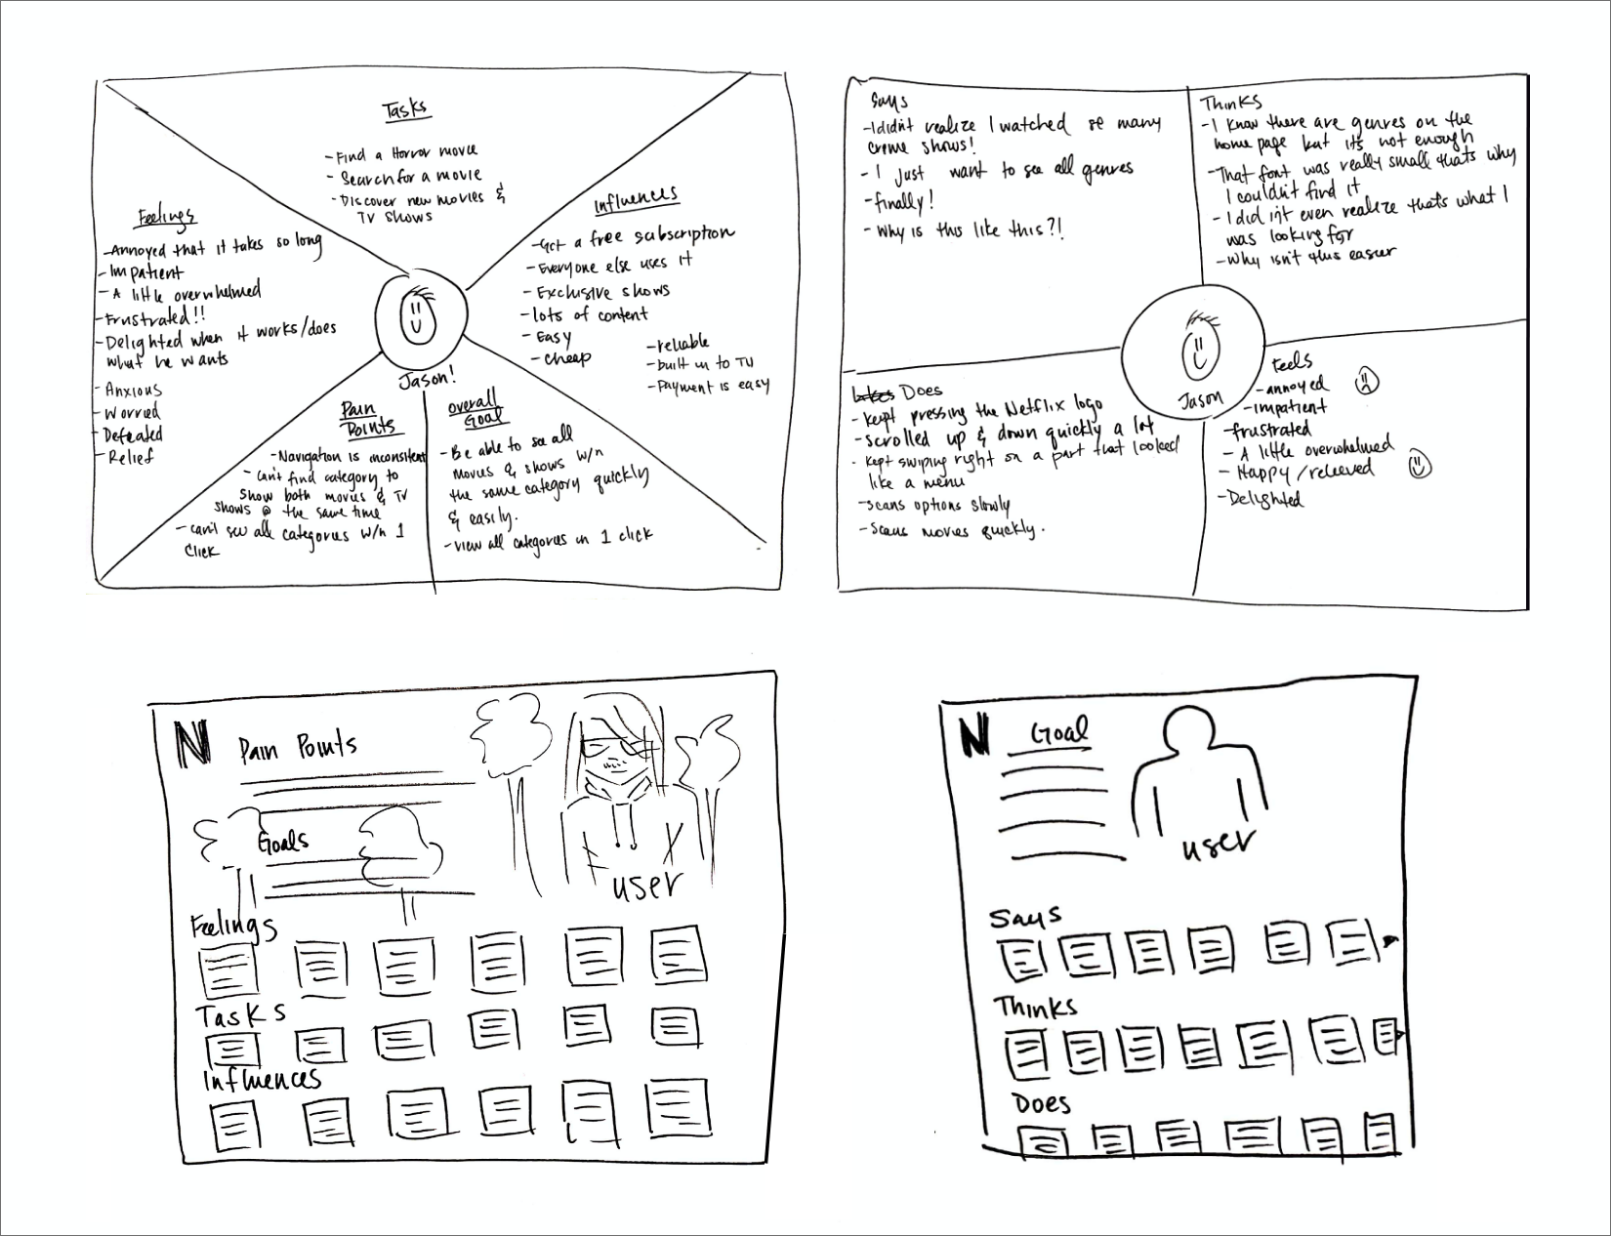 Tasks
- Find a Horror movie
- Search for a movie
- Discover new movies &
TV shows
Feelings
- Annoyed that it takes so long
- Impatient
- A little overwhelmed
- Frustrated!!
- Delighted when it works/does
what he wants
- Anxious
- Worried
- Defeated
- Relief
Influences
- Get a free subscription
- Everyone else uses it
- Exclusive shows
- lots of content
- Easy
- cheap
- reliable
- built in to TV
- Payment is easy
Jason!
Pain
Points
- Navigation is inconsitent
- Can't find category to
show both movies & TV
shows @ the same time
- can't see all categories w/n 1
click
overall
Goal
- Be able to see all
movies & shows w/n
the same category quickly
& easily.
- view all categories in 1 click
Says
- I didn't realize I watched so many
crime shows!
- I just want to see all genres
- finally!
- Why is this like this?!
Thinks
- I know there are genres on the
home page but it's not enough
- That font was really small thats why
I couldn't find it
- I didn't even realize thats what I
was looking for
- Why isn't this easier
Jason
Does
- Kept pressing the Netflix logo
- Scrolled up & down quickly a lot
- Kept swiping right on a part that looked
like a menu
- Scans options slowly
- Scans movies quickly.
Feels
- annoyed
- impatient
- frustrated
- A little overwhelmed
- Happy/relieved
- Delighted
N
Pain Points
Goals
user
Feelings
Tasks
Influences
N
Goal
user
Says
Thinks
Does